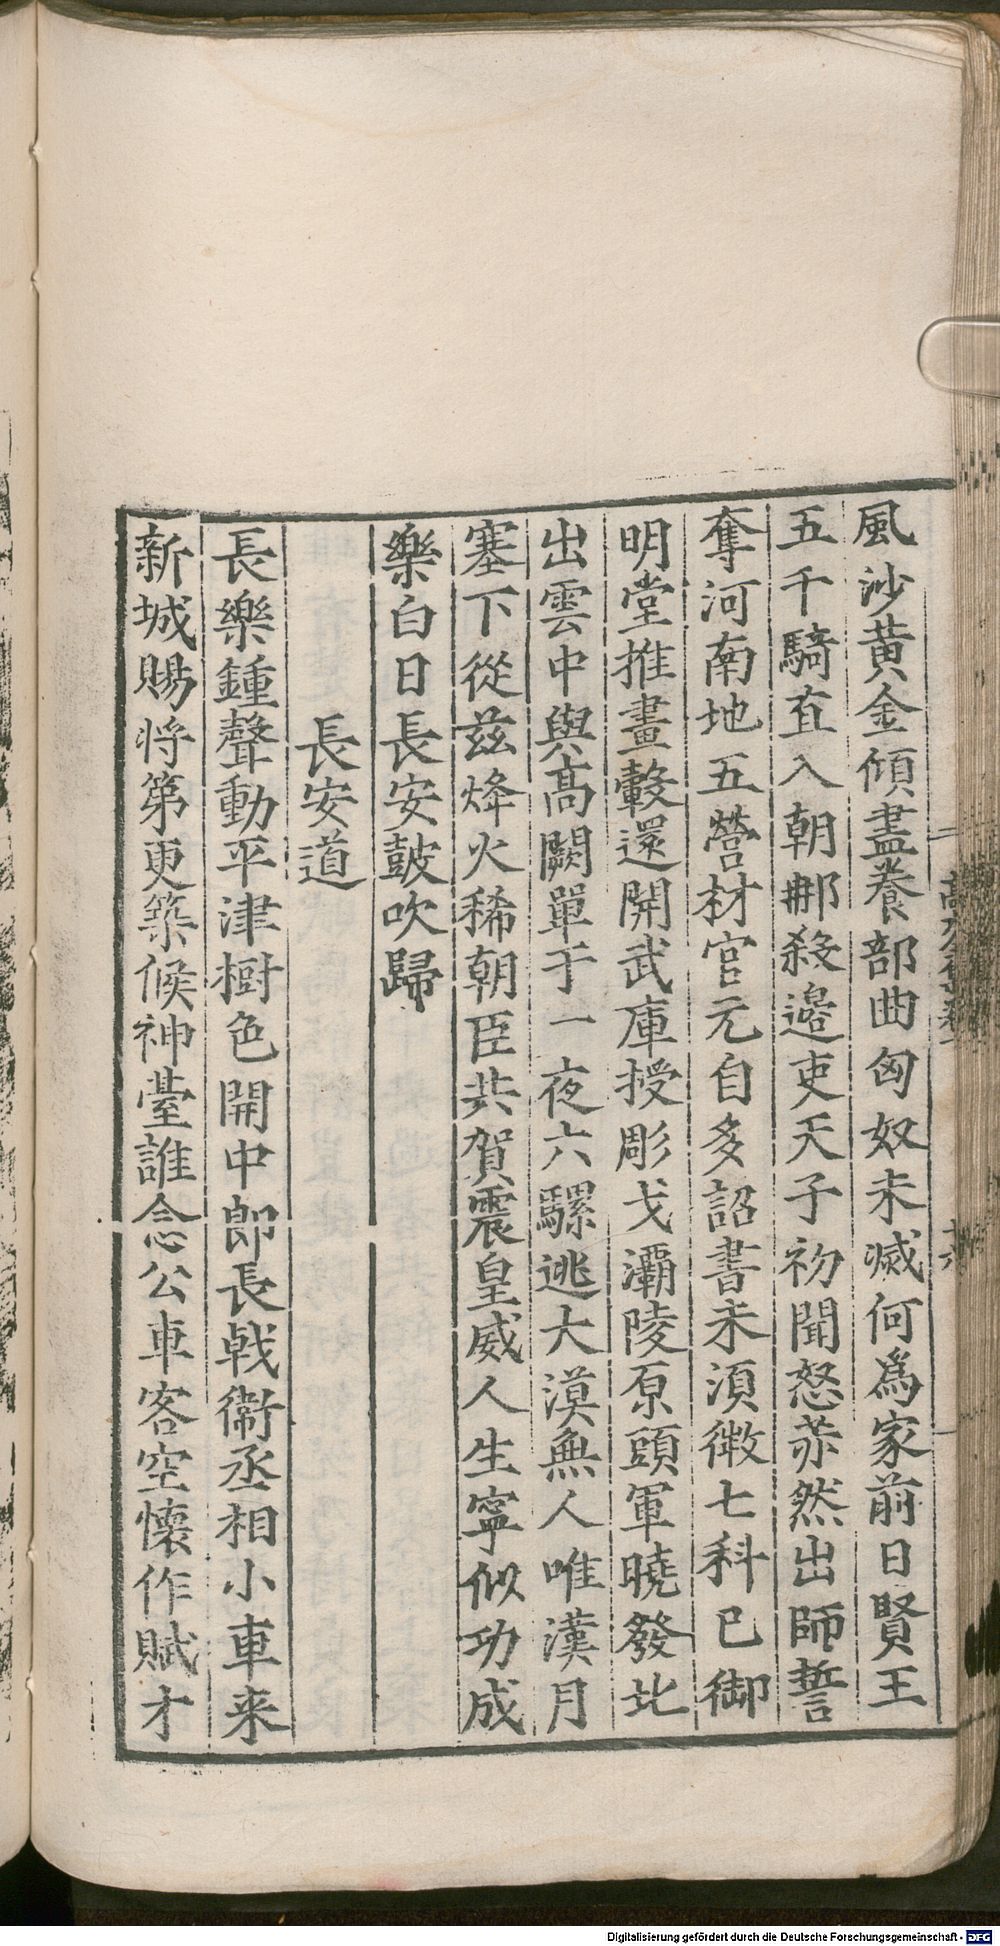 風沙黄金傾盡養部曲匈奴未滅何爲家前日賢王
五千騎直入朝𨙻殺邉吏天子初聞怒赫然出師誓
奪河南地五營材官元自多詔書未湏徴七科已御
明堂推畫轂還開武庫授彫戈灞陵原頭軍曉發北
出雲中與髙闕單于一夜六騾逃大漠無人唯漢月
塞下從兹烽火稀朝臣共賀震皇威人生寧似功成
樂白日長安鼓吹歸
長安道
長樂鍾聲動平津樹色開中郎長戟衛丞相小車来
新城賜将第更築候神臺誰念公車客空懐作賦才
Digitalisierung gefördert durch die Deutsche Forschungsgemeinschaft - DFG